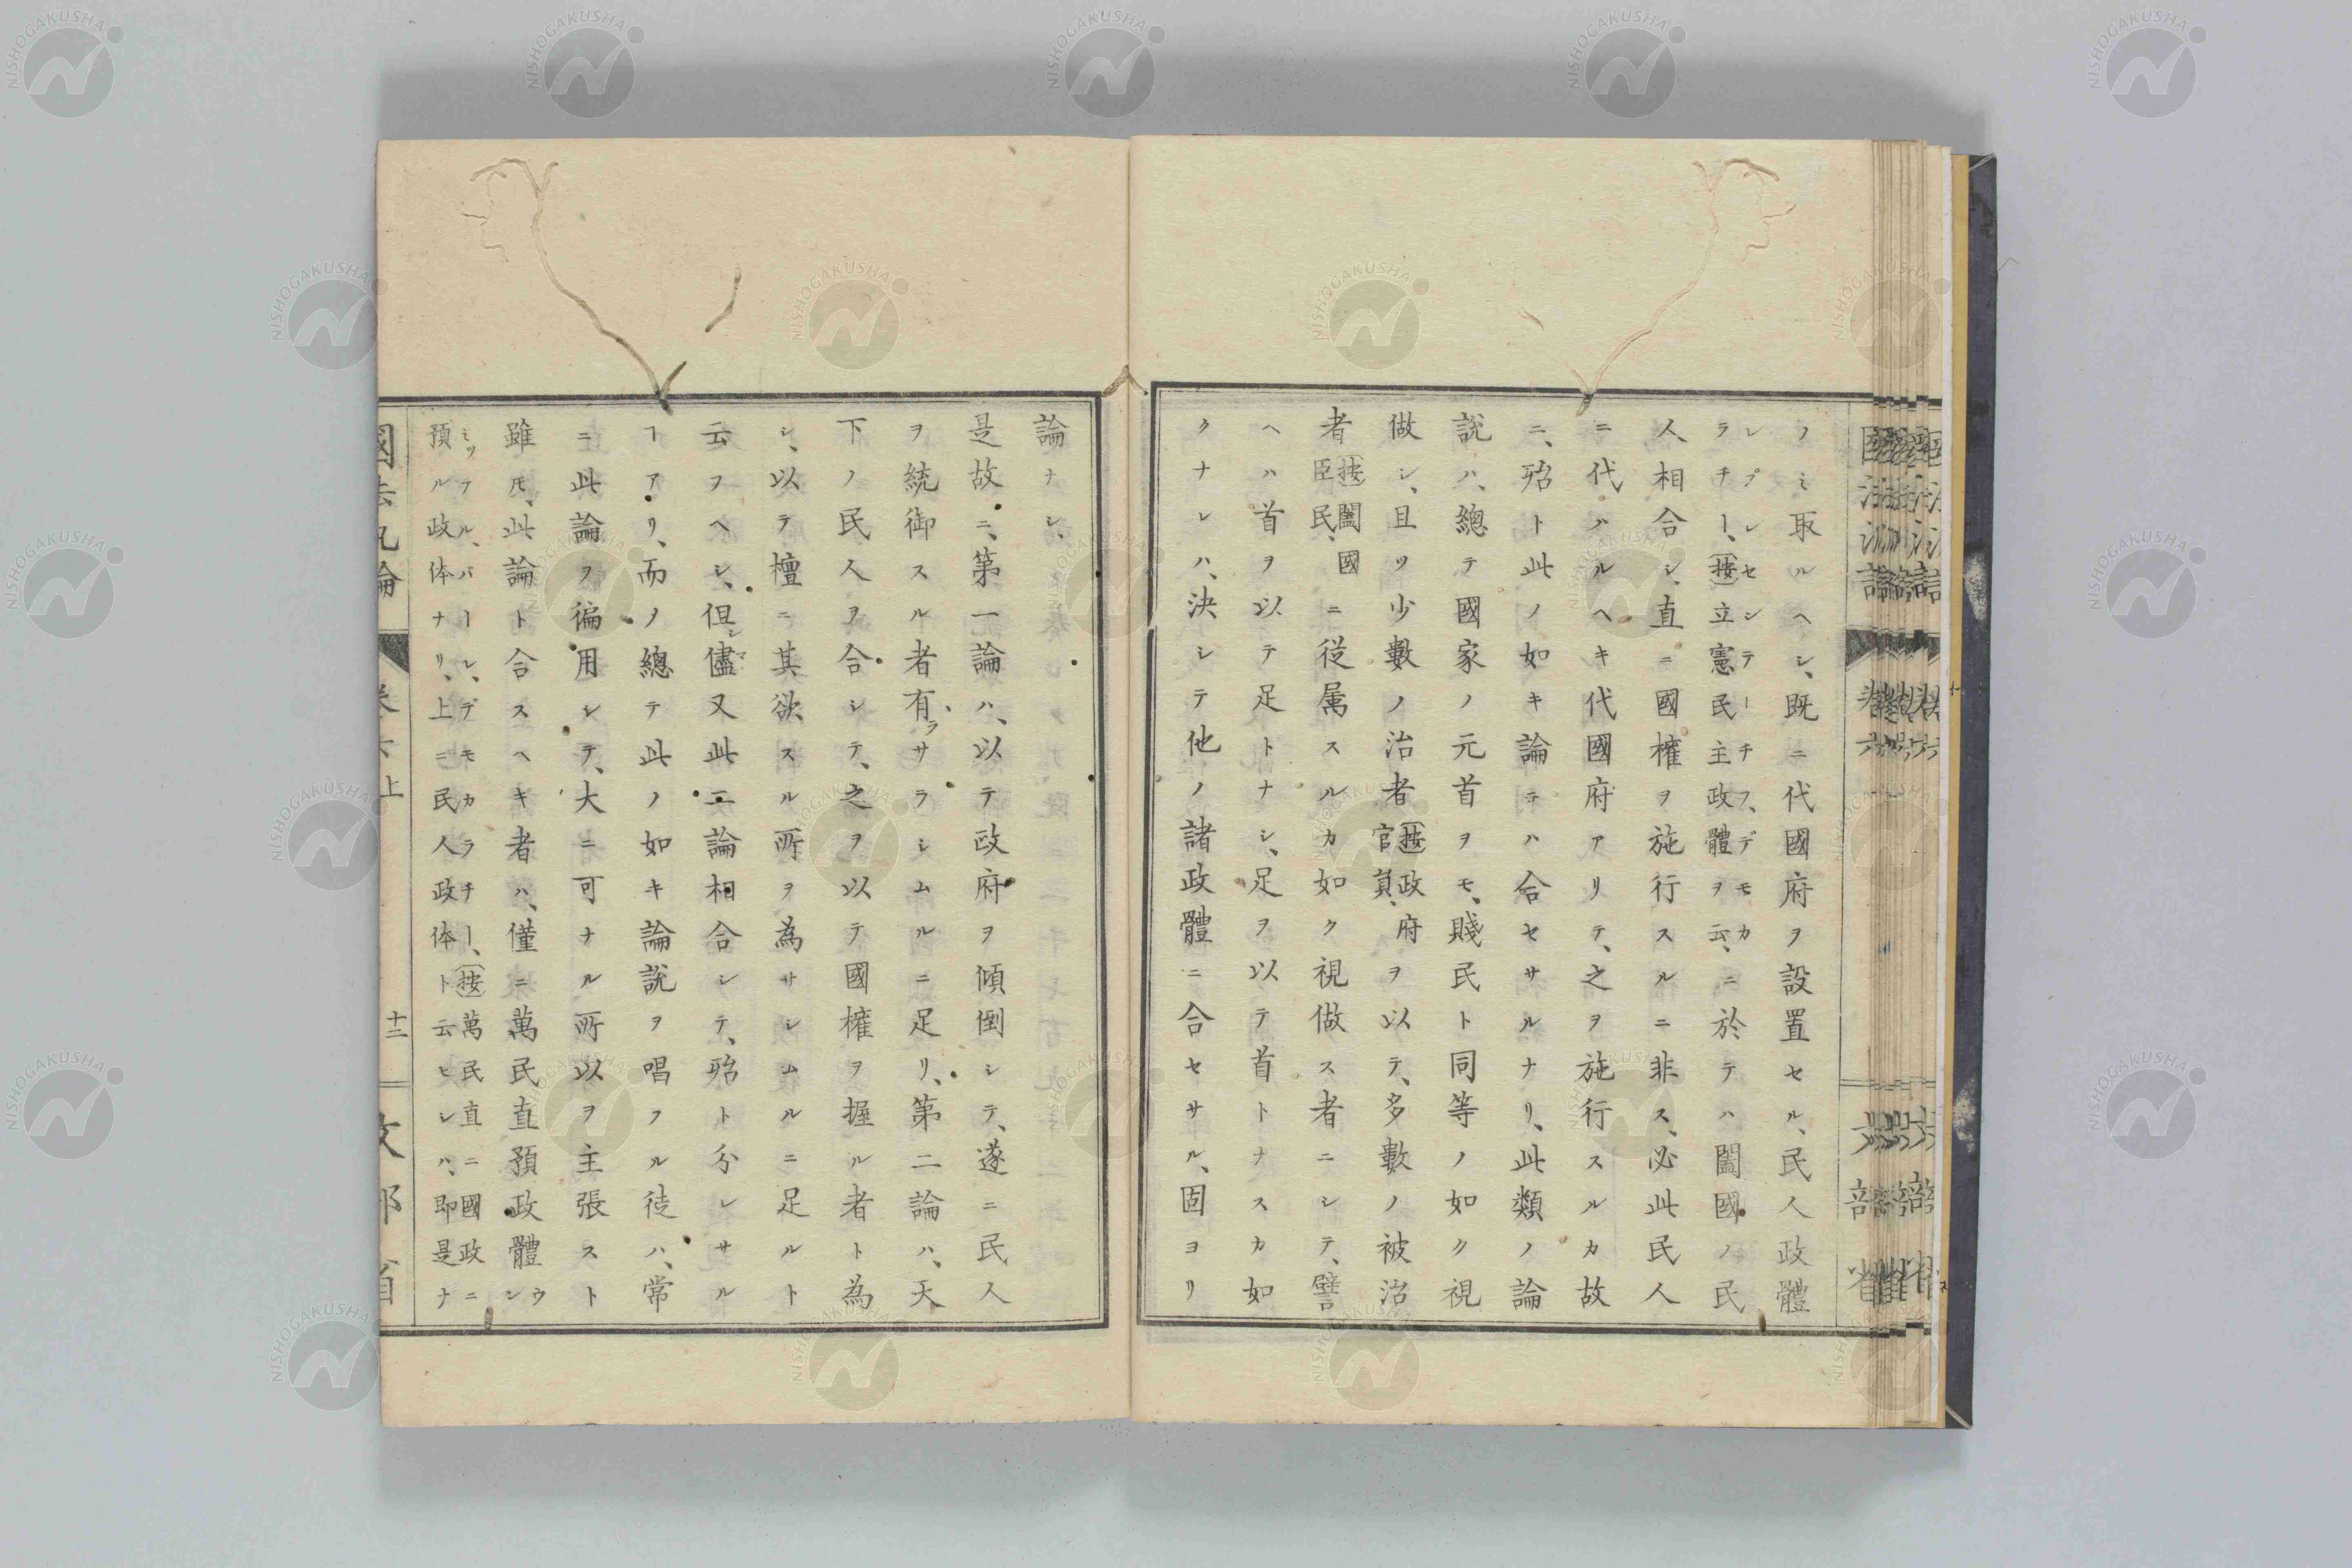 ノミ取ルヘシ、既ニ代國府ヲ設置セル、民人政體
レプレセンテーチフ、デモカ
ラチー、(按)立憲民主政體ヲ云、ニ於テハ闔國ノ民
人相合シ、直ニ國權ヲ施行スルニ非ス、必此民人
ニ代ハルヘキ代國府アリテ、之ヲ施行スルカ故
ニ、殆ト此ノ如キ論テハ合セサルナリ、此類ノ論
説ハ、總テ國家ノ元首ヲモ、賤民ト同等ノ如ク視
做シ、且ツ少數ノ治者(按)政府官員、ヲ以テ、多數ノ被治
者(按)闔國臣民、ニ從属スルカ如ク視做ス者ニシテ、譬
ヘハ首ヲ以テ足トナシ、足ヲ以テ首トナスカ如
クナレハ、決シテ他ノ諸政體ニ合セサル、固ヨリ
論ナシ、
是故ニ、第一論ハ、以テ政府ヲ傾倒シテ、遂ニ民人
ヲ統御スル者有ラサラシムルニ足リ、第二論ハ、天
下ノ民人ヲ合シテ、之ヲ以テ國權ヲ握ル者ト為
シ、以テ檀ニ其欲スル所ヲ為サシムルニ足ルト
云フヘシ、但シ儘マ又此二論相合シテ、殆ト分レサル
ヿアリ、而ノ總テ此ノ如キ論説ヲ唱フル徒ハ、常
ニ此論ヲ徧用シテ、大ニ可ナル所以ヲ主張スト
雖𪜈、此論ト合スヘキ者ハ、僅ニ萬民直預政體ウン
ミツテル、バーレ、デモカラチー、(按)萬民直ニ國政ニ
預ル政体ナリ、上ニ民人政体ト云ヒシハ、即是ナ
國法汎論 卷六上 十二 文部省